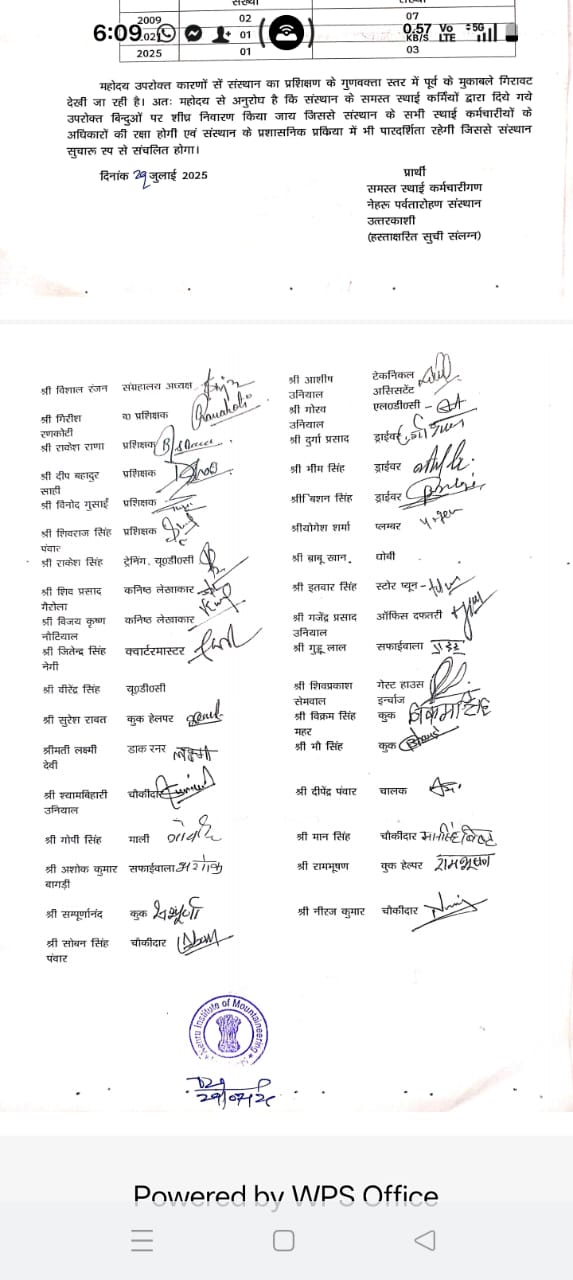 2009 02 07
6:09
0.57 KB/S Vo LTE 5G
01
2025 01 03
महोदय उपरोक्त कारणों सें संस्थान का प्रशिक्षण के गुणवक्ता स्तर में पूर्व के मुकाबले गिरावट
देखी जा रही है। अतः महोदय से अनुरोध है कि संस्थान के समस्त स्थाई कर्मियों द्वारा दिये गये
उपरोक्त बिन्दुओं पर शीघ्र निवारण किया जाय जिससे संस्थान के सभी स्थाई कर्मचारीयों के
अधिकारों की रक्षा होगी एवं संस्थान के प्रशासनिक प्रकिया में भी पारदर्शिता रहेगी जिससे संस्थान
सुचारू रुप से संचलित होगा।
दिनांक 29 जुलाई 2025
प्रार्थी
समस्त स्थाई कर्मचारीगण
नेहरू पर्वतारोहण संस्थान
उत्तरकाशी
(हस्ताक्षरित सुची संलग्न)
श्री विशाल रंजन संग्रहालय अध्यक्ष
श्री गिरीश रणकोटी व० प्रशिक्षक
श्री राकेश राणा प्रशिक्षक
श्री दीप बहादुर साही प्रशिक्षक
श्री विनोद गुसाईं प्रशिक्षक
श्री शिवराज सिंह पंवार प्रशिक्षक
श्री राकेश सिंह ट्रेनिंग, यू०डी०सी
श्री शिव प्रसाद गैरोला कनिष्ठ लेखाकार
श्री विजय कृष्ण नौटियाल कनिष्ठ लेखाकार
श्री जितेन्द्र सिंह नेगी क्वार्टरमास्टर
श्री वीरेंद्र सिंह यू०डी०सी
श्री सुरेश रावत कुक हेलपर
श्रीमती लक्ष्मी देवी डाक रनर लक्ष्मी
श्री श्यामबिहारी उनियाल चौकीदार
श्री गोपी सिंह माली
श्री अशोक कुमार बागड़ी सफाईवाला
श्री सम्पूर्णानंद कुक
श्री सोबन सिंह पंवार चौकीदार
श्री आशीष उनियाल टेकनिकल असिसटेंट
श्री गोरव उनियाल एल०डी०सी
श्री दुर्गा प्रसाद ड्राईवर
श्री भीम सिंह ड्राईवर
श्री बिशन सिंह ड्राईवर
श्री योगेश शर्मा प्लम्बर
श्री बाबू खान, धोबी
श्री इतवार सिंह स्टोर प्यून
श्री गजेंद्र प्रसाद उनियाल ऑफिस दफतरी
श्री गुड्डू लाल सफाईवाला
श्री शिवप्रकाश सेमवाल गेस्ट हाउस इन्चार्ज
श्री विक्रम सिंह महर कुक
श्री भौ सिंह कुक
श्री दीपेंद्र पंवार चालक
श्री मान सिंह चौकीदार
श्री रामभूषण कुक हेल्पर रामभूषण
श्री नीरज कुमार चौकीदार
Nehru Institute of Mountaineering
29/07/25
Powered by WPS Office